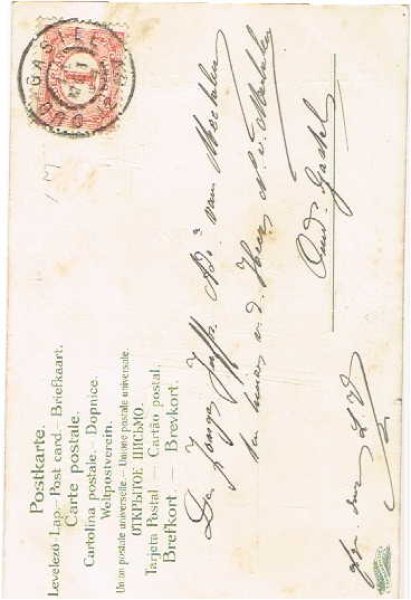 Postkarte.
Levelező Lap. — Post card. — Briefkaart.
Carte postale.
Cartolina postale. — Dopnice.
Weltpostverein.
Union postale universelle. — Unione postale universale.
ОТКРЫТОЕ ПИСЬМО.
Tarjeta Postal — Cartão postal.
Brefkort. — Brevkort.
OUD GASTEL
1
De Jonge Juffr.
ten huize v. d. Heer
Oud Gastel